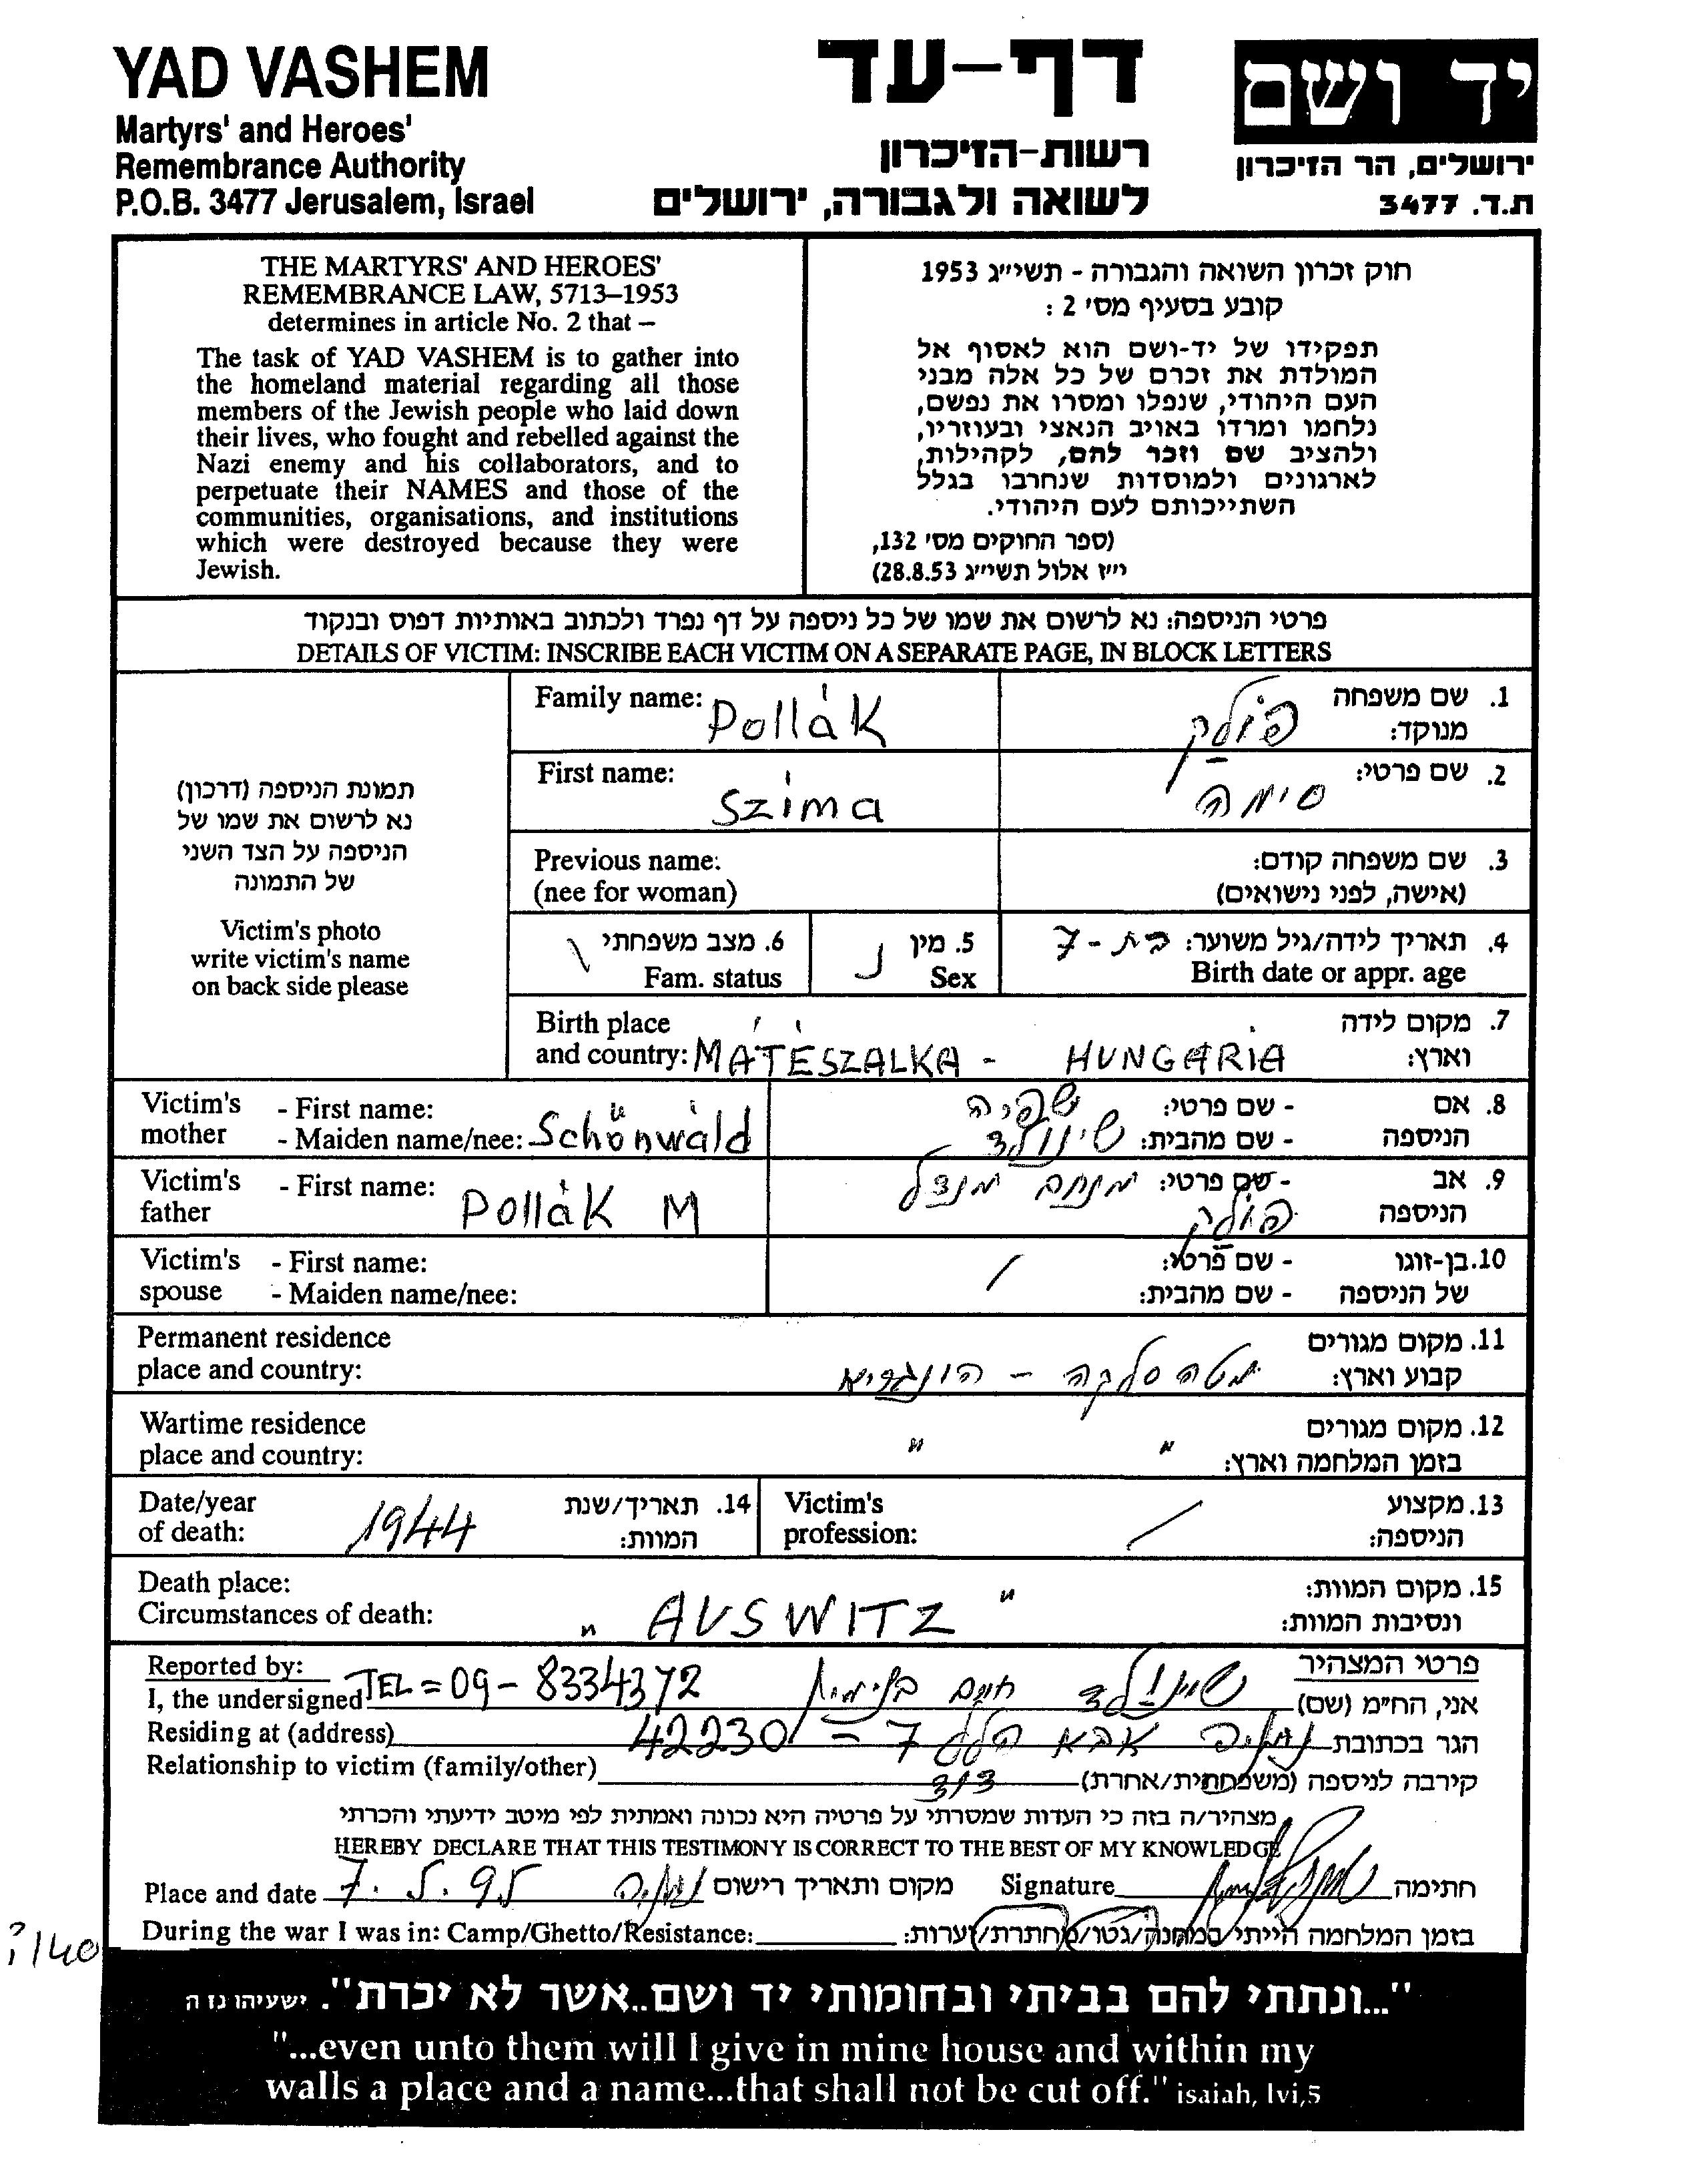 YAD VASHEM
Martyrs' and Heroes'
Remembrance Authority
P.O.B. 3477 Jerusalem, Israel
דף-עד
רשות-הזיכרון
לשואה ולגבורה, ירושלים
יד ושם
ירושלים, הר הזיכרון
ת.ד. 3477
THE MARTYRS' AND HEROES'
REMEMBRANCE LAW, 5713–1953
determines in article No. 2 that –
The task of YAD VASHEM is to gather into
the homeland material regarding all those
members of the Jewish people who laid down
their lives, who fought and rebelled against the
Nazi enemy and his collaborators, and to
perpetuate their NAMES and those of the
communities, organisations, and institutions
which were destroyed because they were
Jewish.
חוק זכרון השואה והגבורה - תשי״ג 1953
קובע בסעיף מס׳ 2 :
תפקידו של יד-ושם הוא לאסוף אל
המולדת את זכרם של כל אלה מבני
העם היהודי, שנפלו ומסרו את נפשם,
נלחמו ומרדו באויב הנאצי ובעוזריו,
ולהציב שם וזכר להם, לקהילות,
לארגונים ולמוסדות שנחרבו בגלל
השתייכותם לעם היהודי.
(ספר החוקים מס׳ 132,
י״ז אלול תשי״ג 28.8.53)
פרטי הניספה: נא לרשום את שמו של כל ניספה על דף נפרד ולכתוב באותיות דפוס ובנקוד
DETAILS OF VICTIM: INSCRIBE EACH VICTIM ON A SEPARATE PAGE, IN BLOCK LETTERS
תמונת הניספה (דרכון)
נא לרשום את שמו של
הניספה על הצד השני
של התמונה
Victim's photo
write victim's name
on back side please
Family name: Pollák פולק 1. שם משפחה
מנוקד:
First name: Szima סימה 2. שם פרטי:
Previous name:
(nee for woman)
3. שם משפחה קודם:
(אישה, לפני נישואים)
4. תאריך לידה/גיל משוער: בת - 7
Birth date or appr. age
5. מין נ
Sex
6. מצב משפחתי
Fam. status
Birth place
and country: MÁTÉSZALKA - HUNGÁRIA
7. מקום לידה
וארץ:
Victim's mother - First name:
- Maiden name/nee: Schönwald
8. אם - שם פרטי:
הניספה - שם מהבית: שינולד
Victim's father - First name: Pollák M
9. אב - שם פרטי: מנחם מנדל
הניספה פולק
Victim's - First name:
spouse - Maiden name/nee:
10. בן-זוגו - שם פרטי:
של הניספה - שם מהבית:
Permanent residence
place and country:
11. מקום מגורים
קבוע וארץ: מטה סלקה - הונגריא
Wartime residence
place and country:
12. מקום מגורים
בזמן המלחמה וארץ: " "
Date/year
of death: 1944
14. תאריך/שנת
המוות:
Victim's
profession: /
13. מקצוע
הניספה:
Death place:
Circumstances of death: " AUSWITZ "
15. מקום המוות:
ונסיבות המוות:
Reported by:
I, the undersigned TEL = 09 - 8334372
פרטי המצהיר
אני, החי״מ (שם) שינולד חיים בנימין
Residing at (address)
הגר בכתובת נתניה אבא הלל 7 - 42230
Relationship to victim (family/other)
קירבה לניספה (משפחתית/אחרת) דוד
מצהיר/ה בזה כי העדות שמסרתי על פרטיה היא נכונה ואמתית לפי מיטב ידיעתי והכרתי
HEREBY DECLARE THAT THIS TESTIMONY IS CORRECT TO THE BEST OF MY KNOWLEDGE
Place and date 7.5.95 נתניה מקום ותאריך רישום Signature חתימה
During the war I was in: Camp/Ghetto/Resistance: בזמן המלחמה הייתי במחנה/גטו/מחתרת/יערות:
"...ונתתי להם בביתי ובחומותי יד ושם..אשר לא יכרת". ישעיהו נז ה
"...even unto them will I give in mine house and within my
walls a place and a name...that shall not be cut off." isaiah, lvi,5